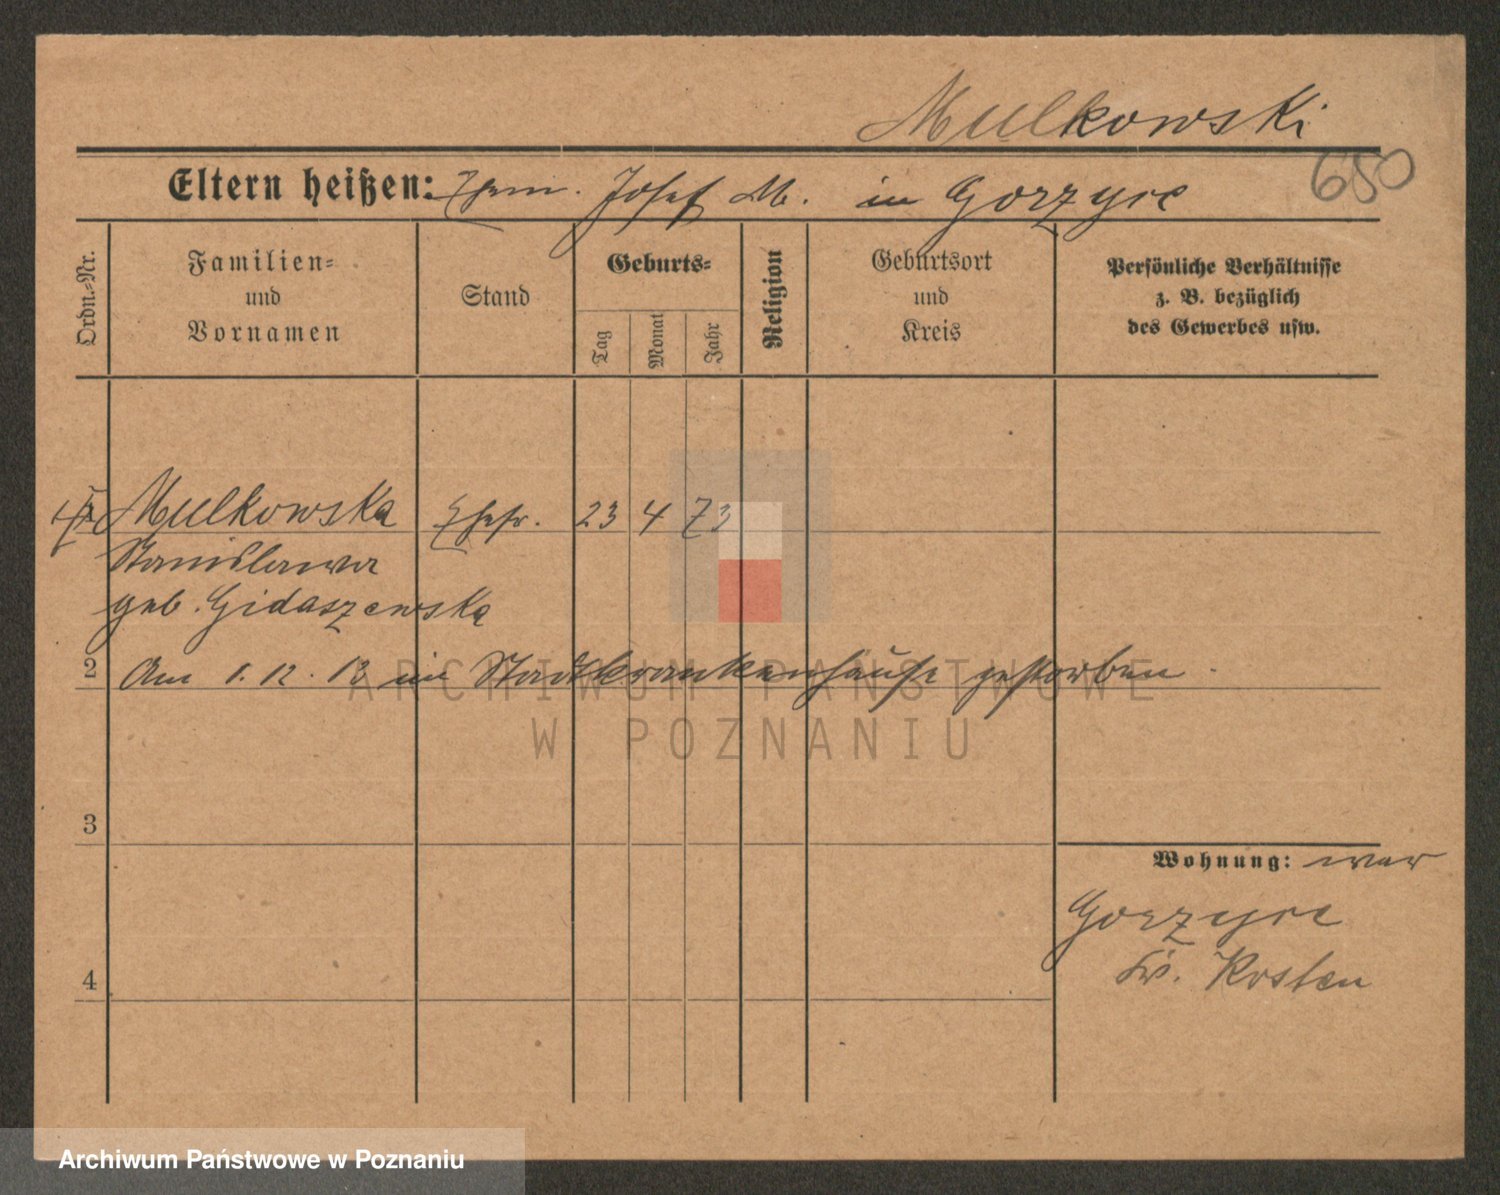 Mulkowski
680
Eltern heißen: Ehem. Josef M. in Gorzyce
Ordn.-Nr.
Familien-
und
Vornamen
Stand
Geburts-
Tag
Monat
Jahr
Religion
Geburtsort
und
Kreis
Persönliche Verhältnisse
z. B. bezüglich
des Gewerbes usw.
Mulkowska Ehefr. 23 4 73
Stanislawa
geb. Gidaszewska
2 Am 1.12.13 im Stadtkrankenhause gestorben.
3
Wohnung: war
Gorzyce
Kr. Kosten
4
ARCHIWUM PAŃSTWOWE
W POZNANIU
Archiwum Państwowe w Poznaniu